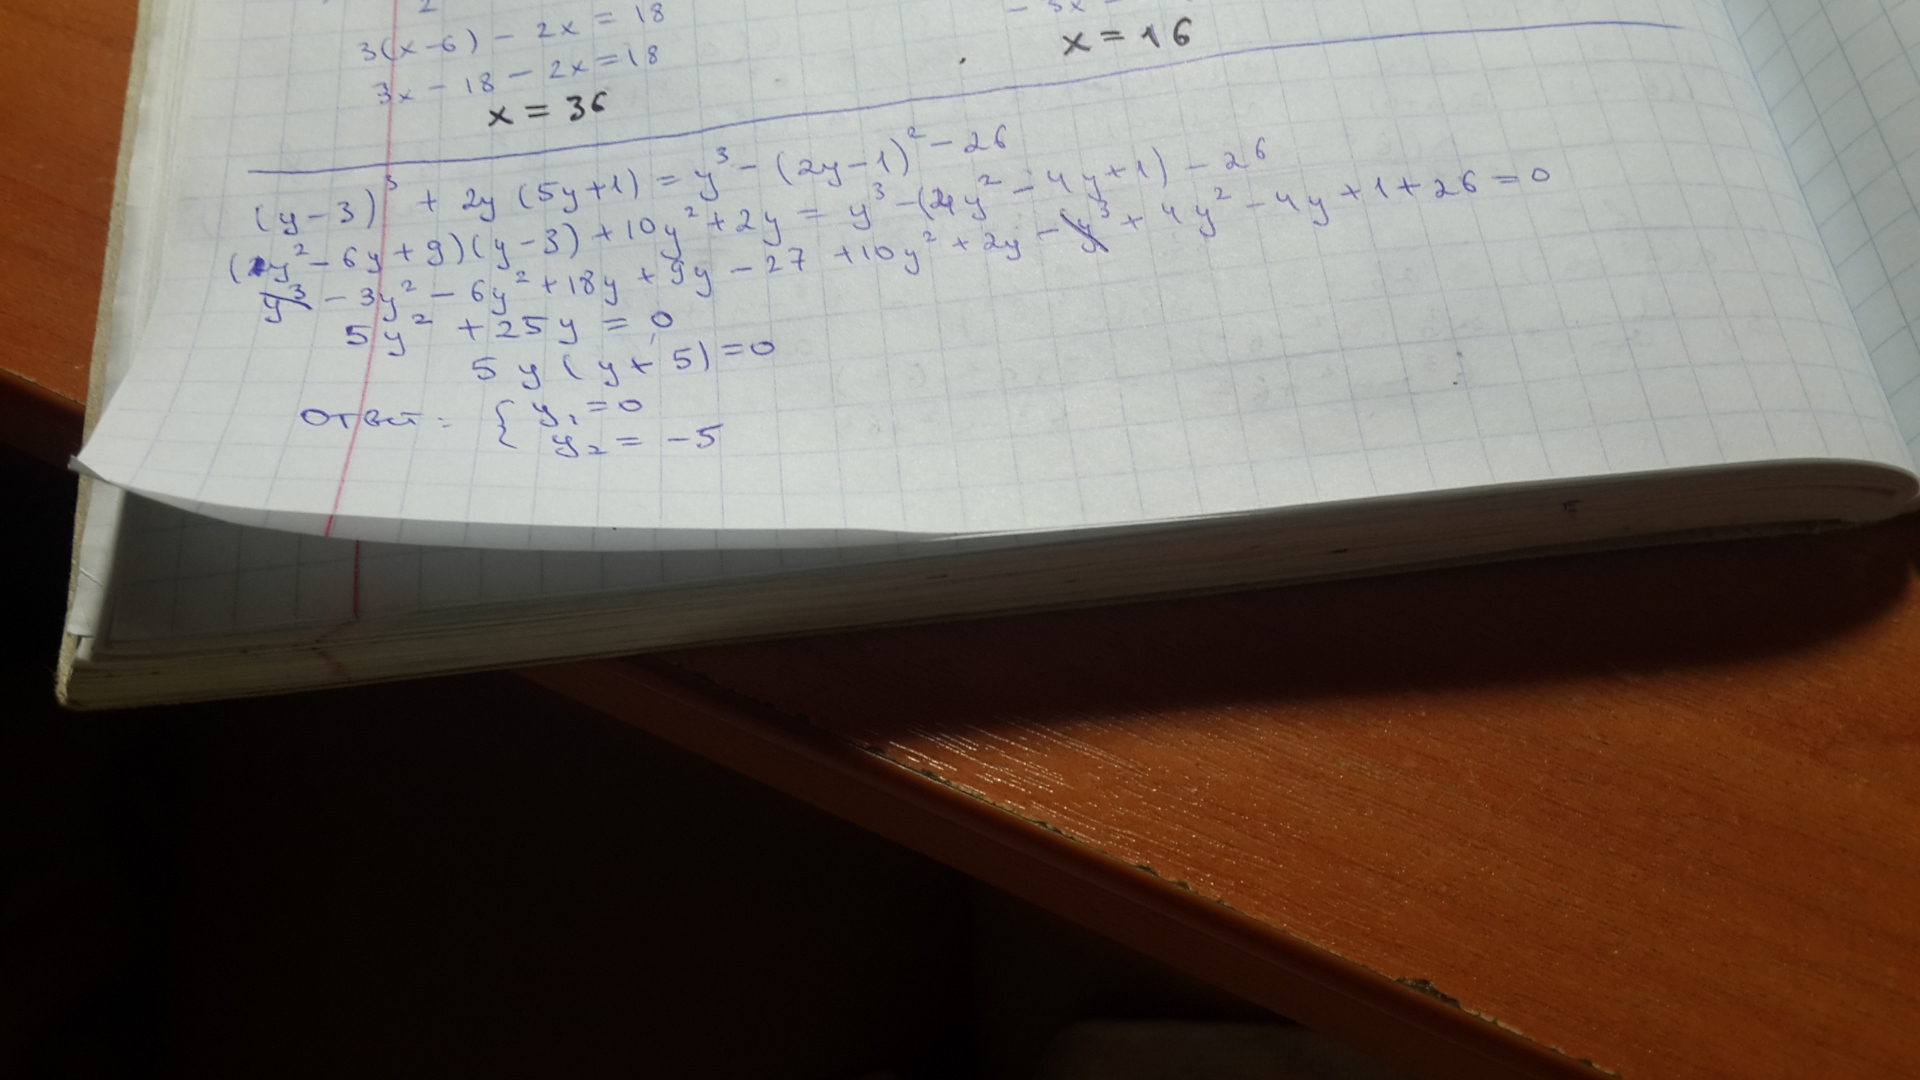 2
3(x-6) - 2x = 18
3x - 18 - 2x = 18
x = 36
- 3x -
x = 16
(y-3)³ + 2y(5y+1) = y³ - (2y-1)² - 26
(y² - 6y + 9)(y-3) + 10y² + 2y = y³ - (4y² - 4y + 1) - 26
y³ - 3y² - 6y² + 18y + 9y - 27 + 10y² + 2y - y³ + 4y² - 4y + 1 + 26 = 0
5y² + 25y = 0
5y(y+5) = 0
Ответ: { y₁ = 0
y₂ = -5